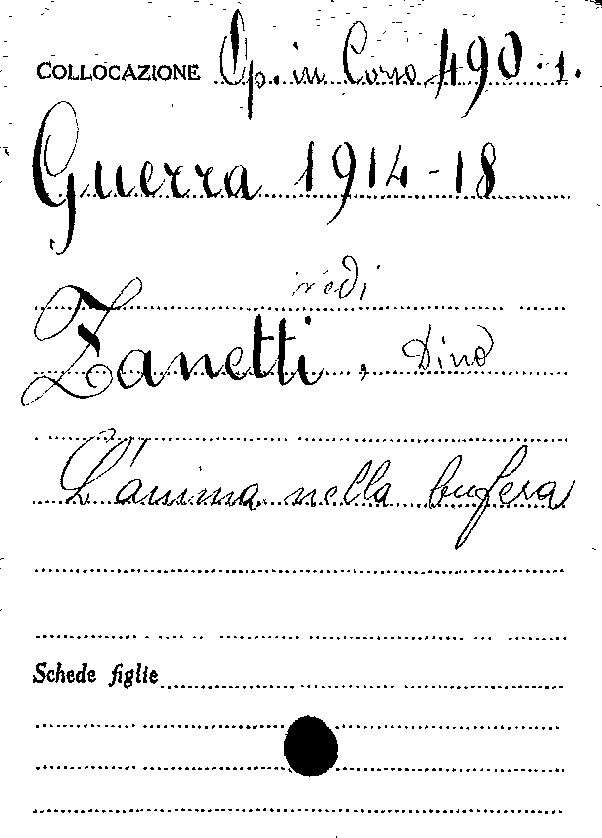 COLLOCAZIONE Op. in Corso 490.1.
Guerra 1914-18
vedi
Zanetti, Dino
L'anima nella bufera
Schede figlie